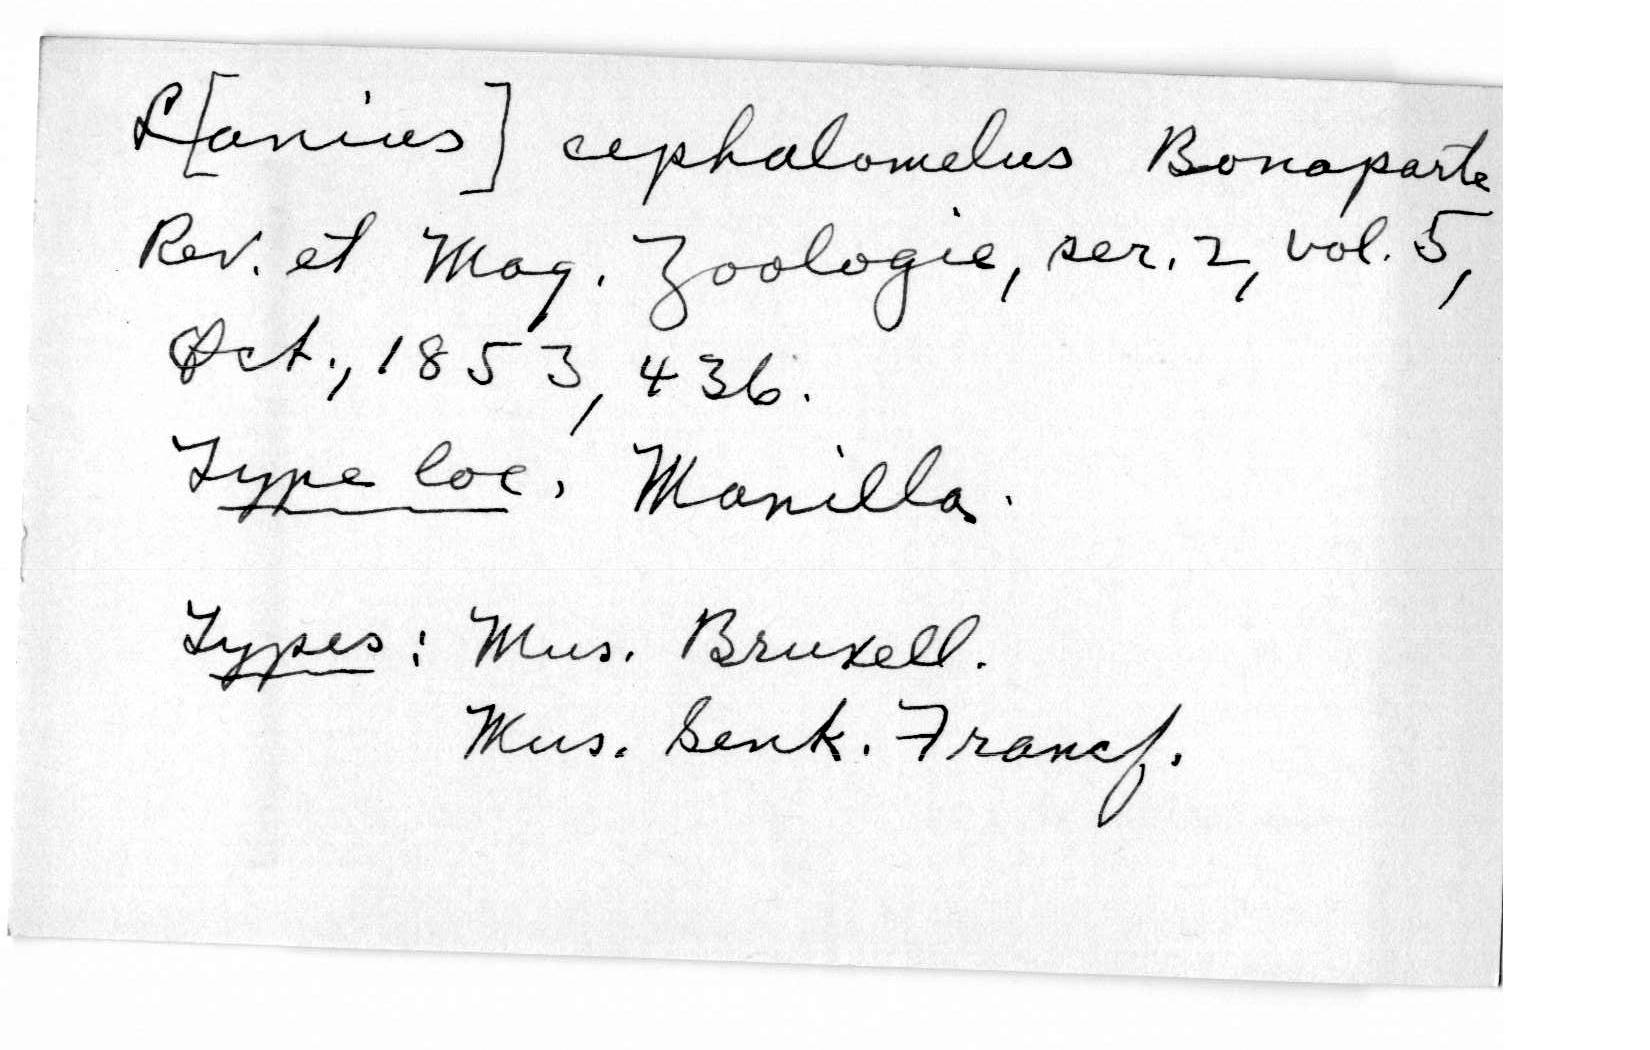 L[anius] cephalomelus Bonaparte
Rev. et Mag. Zoologie, ser. 2, vol. 5,
Oct., 1853, 436.
Type loc. Manilla.
Types: Mus. Bruxell.
Mus. Senk. Francf.